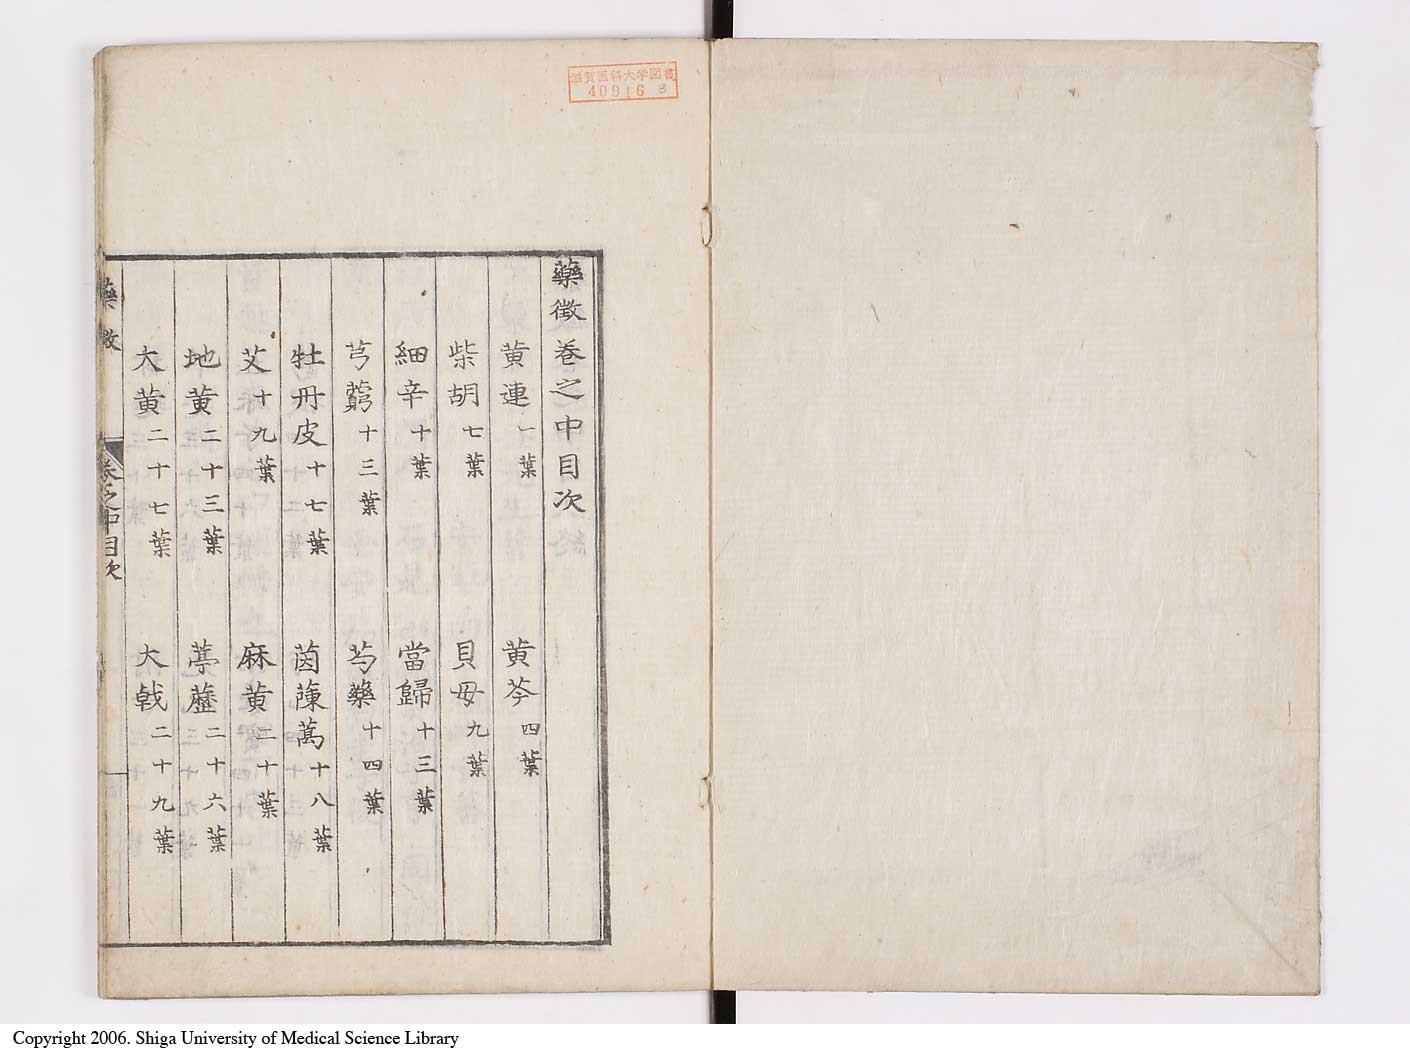 滋賀医科大学図書
40916 3
藥徴巻之中目次
黄連一葉 黄芩四葉
柴胡七葉 貝母九葉
細辛十葉 當歸十三葉
芎藭十三葉 芍藥十四葉
牡丹皮十七葉 茵蔯蒿十八葉
艾十九葉 麻黄二十葉
地黄二十三葉 葶藶二十六葉
大黄二十七葉 大戟二十九葉
藥徴 巻之中目次
Copyright 2006. Shiga University of Medical Science Library